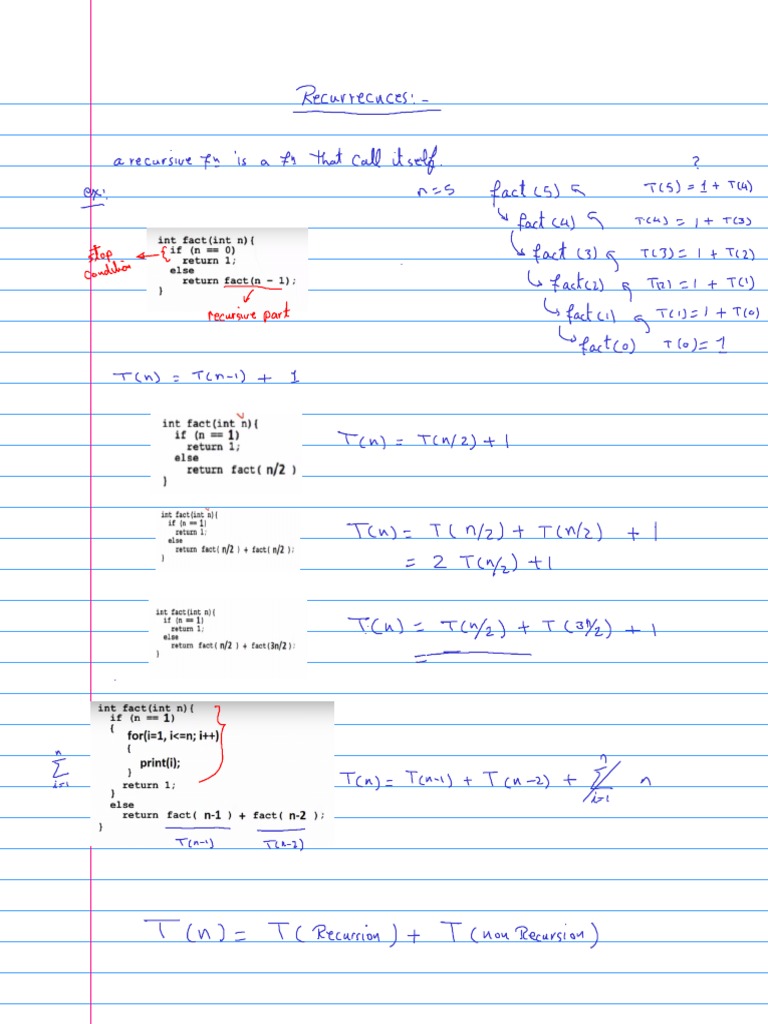 Recurrecnces:-
a recursive fn is a fn that call itself.
?
ex:
n=5 fact(5) T(5) = 1 + T(4)
fact(4) T(4) = 1 + T(3)
fact(3) T(3) = 1 + T(2)
fact(2) T(2) = 1 + T(1)
fact(1) T(1) = 1 + T(0)
fact(0) T(0) = 1
int fact(int n){
if (n == 0)
return 1;
else
return fact(n - 1);
}
stop
condition
recursive part
T(n) = T(n-1) + 1
int fact(int n){
if (n == 1)
return 1;
else
return fact( n/2 )
}
T(n) = T(n/2) + 1
int fact(int n){
if (n == 1)
return 1;
else
return fact( n/2 ) + fact( n/2 );
}
T(n) = T(n/2) + T(n/2) + 1
= 2 T(n/2) + 1
int fact(int n){
if (n == 1)
return 1;
else
return fact( n/2 ) + fact(3n/2 );
}
T(n) = T(n/2) + T(3n/2) + 1
=
int fact(int n){
if (n == 1)
{
for(i=1, i<=n; i++)
{
print(i);
}
return 1;
}
else
return fact( n-1 ) + fact( n-2 );
}
n
Σ
i=1
T(n-1) T(n-2)
T(n) = T(n-1) + T(n-2) + Σ n
n
i=1
T(n) = T(Recursion) + T(non Recursion)